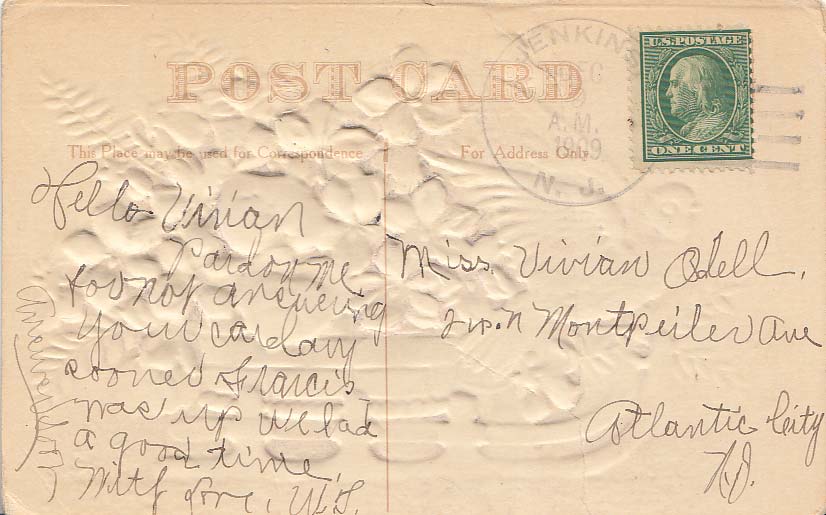 POST CARD
This Place may be used for Correspondence
For Address Only
JENKIN
DEC
9
A.M.
1909
N. J.
U.S. POSTAGE
ONE CENT
Hello Vivian
Pardon me
for not answering
your card any
sooner Francis
was up we had
a good time.
With Love,
Answer soon
Miss. Vivian Odell,
N Montpeiler Ave
Atlantic City
N.J.